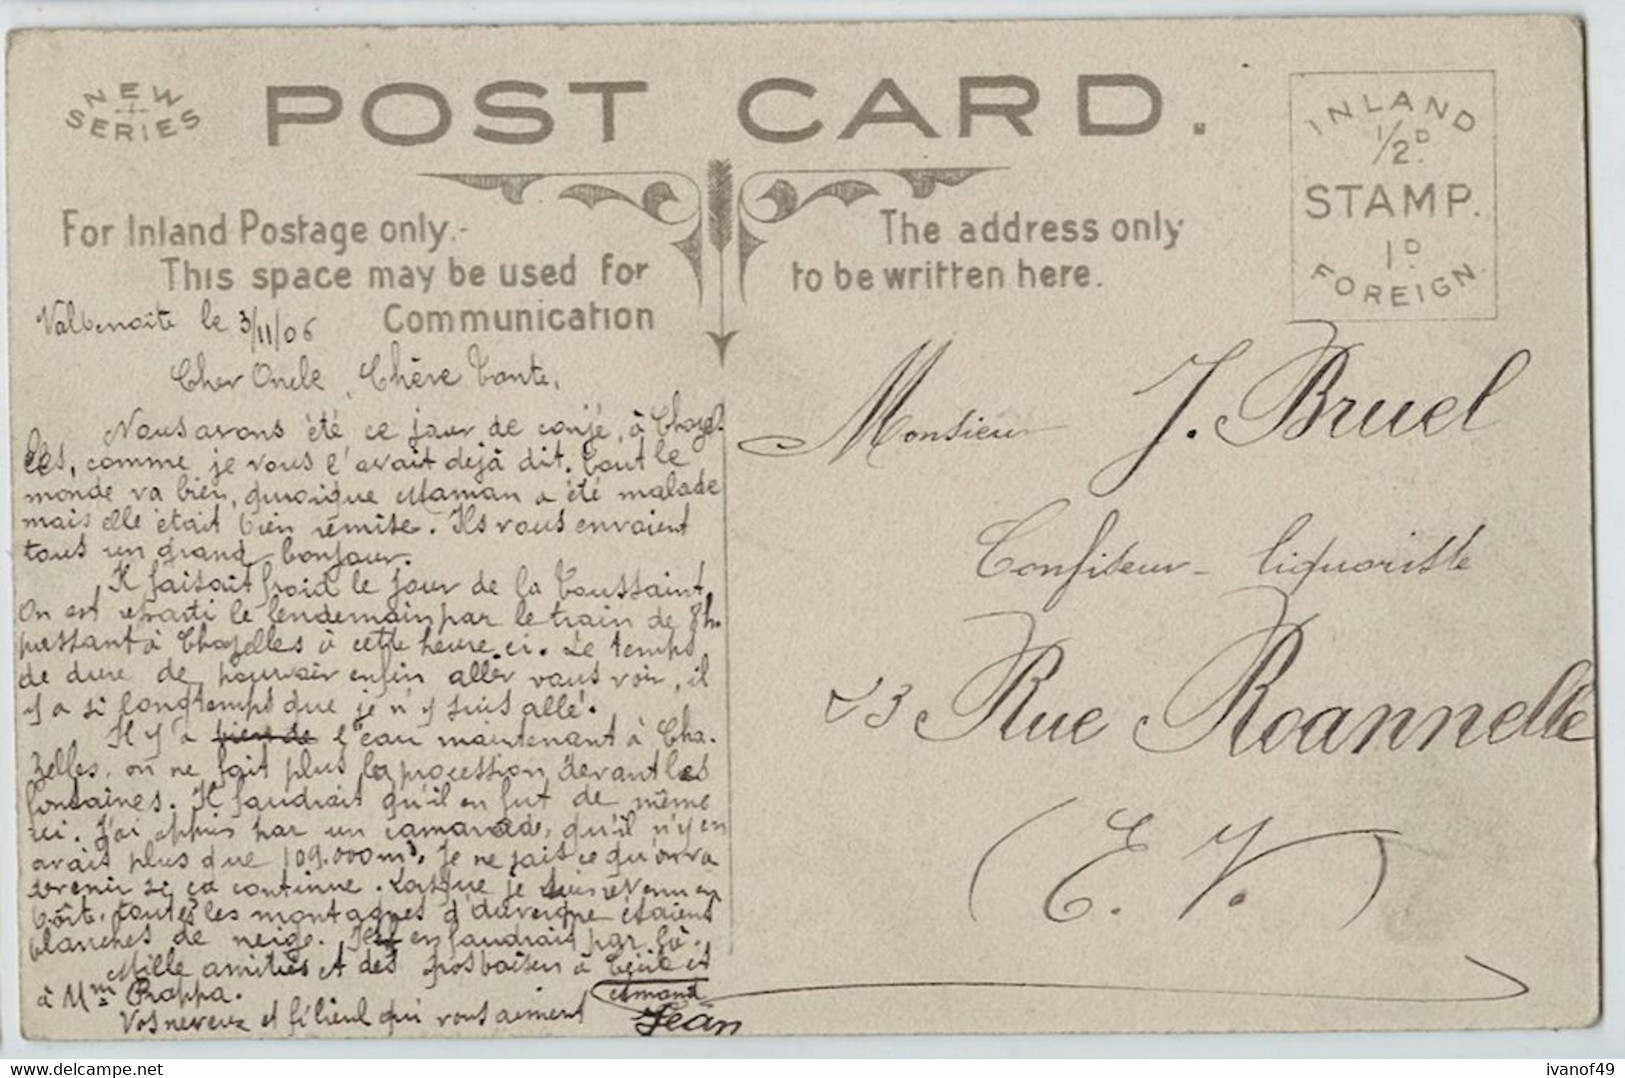 NEW
SERIES
POST CARD.
INLAND
1/2D.
STAMP.
1D
FOREIGN.
For Inland Postage only.-
This space may be used for
Communication
The address only
to be written here.
Valbenoîte le 3/11/06
Cher Oncle, Chère Tante,
Nous avons été ce jour de congé, à Chazel-
les, comme je vous l'avait dejà dit. Tout le
monde va bien, quoique Maman a été malade
mais elle était bien remise. Ils vous envoient
tous un grand bonjour.
Il faisait froid le jour de la Toussaint.
On est reparti le lendemain par le train de 8h.
passant à Chazelles à cette heure ci. Le temps
de dure de pouvoir enfin aller vous voir, il
y a si longtemps que je n'y suis allé.
Il y a l'eau maintenant à Cha-
zelles, on ne fait plus la procession devant les
fontaines. Il faudrait qu'il en fut de même
ici. J'ai appris par un camarade, qu'il n'y en
avait plus que 109.000m3. Je ne sais ce qu'on va
devenir si ça continue. Lorsque je suis revenu en
toutes les montagnes d'Auvergne étaient
blanches de neige. Il en faudrait par là.
Mille amitiés et des gros baisers à Cécile et
à Mme Rappa.
Vos neveux et filleul qui vous aiment
Jean
Monsieur J. Bruel
Confiseur - liquoriste
23 Rue Roannelle
(E. V.)
ivanof49